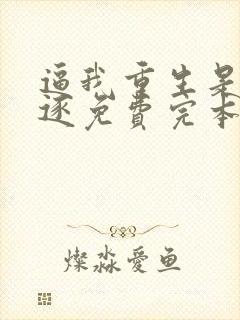 逼我重生是
逐免费完本
燦淼愛鱼